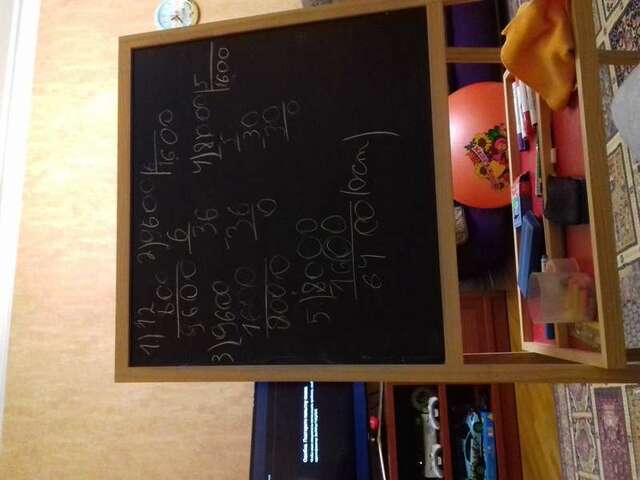 1) 12
600
9600
2) 9600 6
1600
6
36
36
0
3) 9600
1600
8000
4) 8000 5
1600
5
30
30
0
5) 8000
1600
6400 (ост)
Ошибка. Повторите попытку позже.